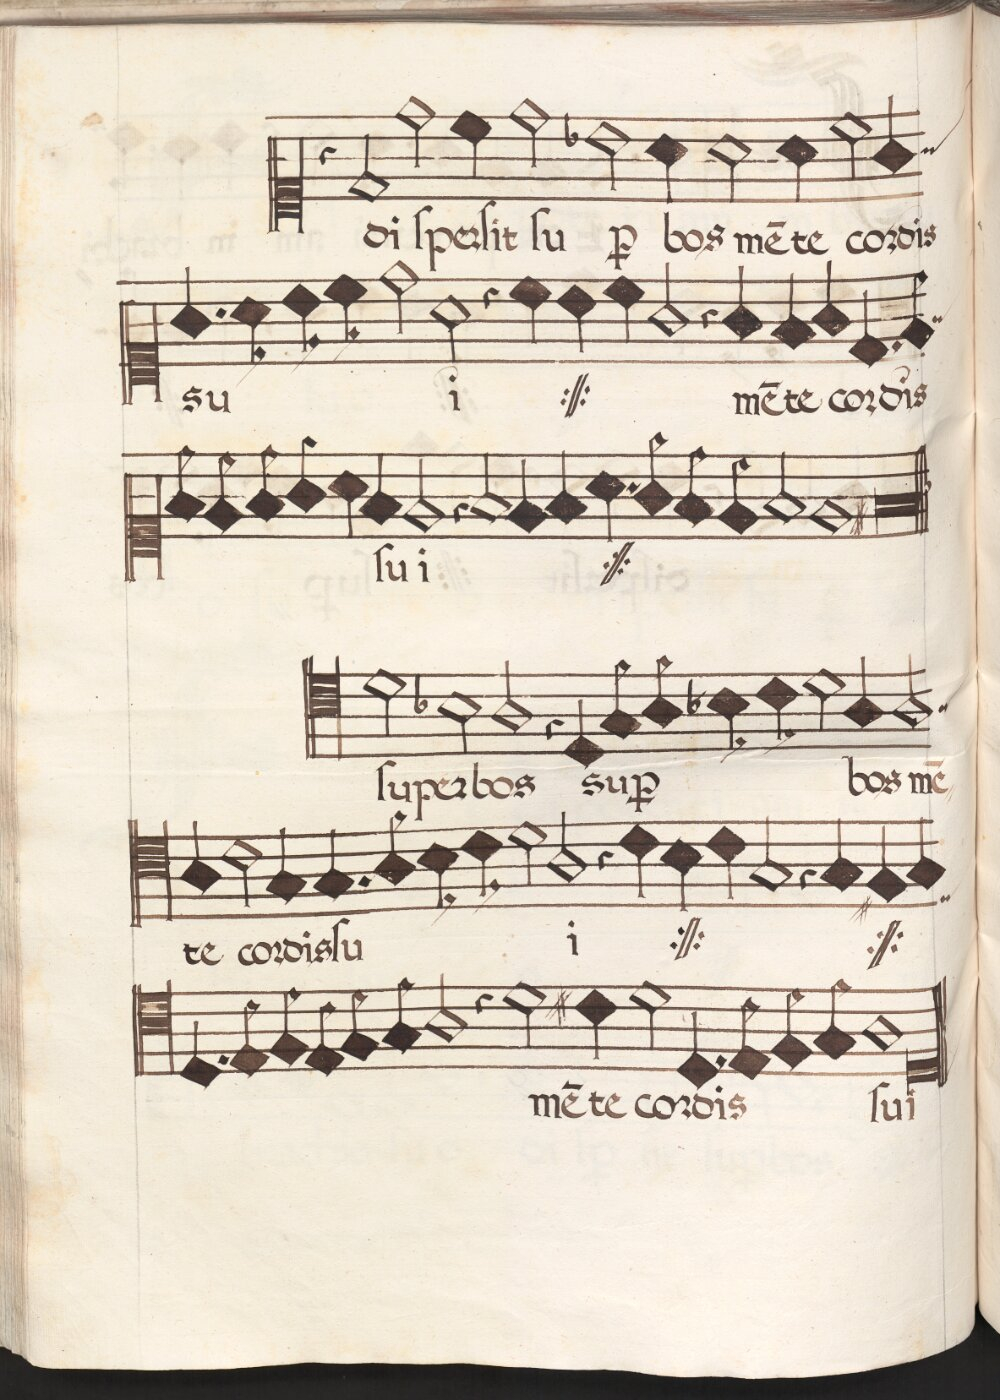 di sperſit ſu p̱ bos mēte cordis
su i ://: mēte cordis
ſu i ://:
ſuperbos sup̱ bos mē
te cordisſu i ://: ://:
mēte cordis ſui